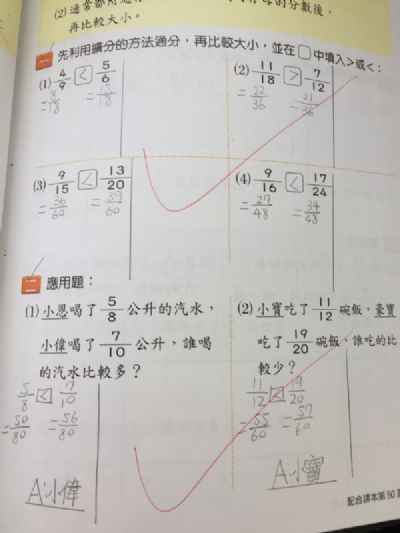 再比較大小。
一 先利用擴分的方法通分，再比較大小，並在□中填入>或<：
(1) 4/9 < 5/6
= 8/18 = 15/18
(2) 11/18 > 7/12
= 22/36 = 21/36
(3) 9/15 < 13/20
= 36/60 = 39/60
(4) 9/16 < 17/24
= 27/48 = 34/48
二 應用題：
(1) 小恩喝了 5/8 公升的汽水，
小偉喝了 7/10 公升，誰喝
的汽水比較多？
5/8 < 7/10
= 50/80 = 56/80
A:小偉
(2) 小寶吃了 11/12 碗飯，豪寶
吃了 19/20 碗飯，誰吃的比
較少？
11/12 < 19/20
= 55/60 = 57/60
A:小寶
配合課本第50